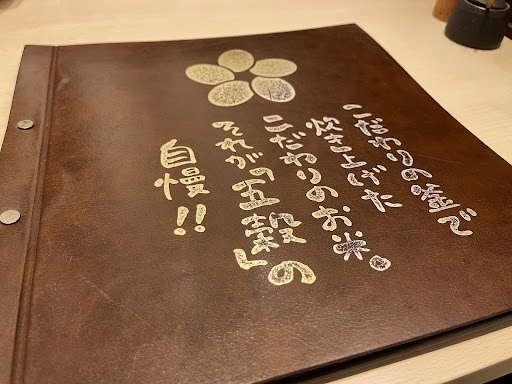 こだわりの釜で
炊き上げた
こだわりのお米。
それが「五穀」の
自慢!!